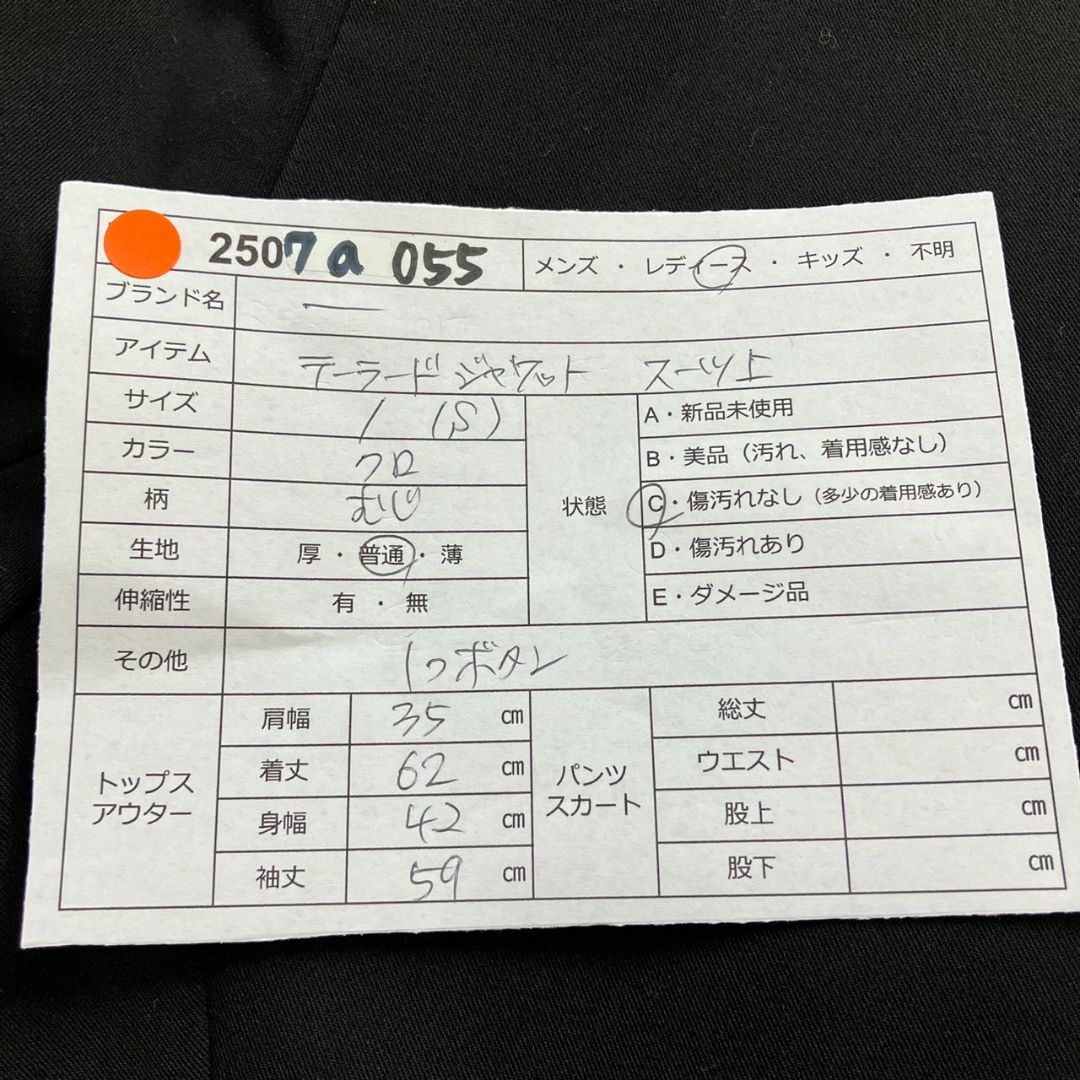 2507a 055 メンズ ・ レディース ・ キッズ ・ 不明
ブランド名 ー
アイテム テーラードジャケット スーツ上
サイズ 1 (S)
カラー クロ
柄 むじ
生地 厚・普通・薄
伸縮性 有・無
状態
A・新品未使用
B・美品（汚れ、着用感なし）
C・傷汚れなし（多少の着用感あり）
D・傷汚れあり
E・ダメージ品
その他 1つボタン
トップス
アウター
肩幅 35 cm
着丈 62 cm
身幅 42 cm
袖丈 59 cm
パンツ
スカート
総丈 cm
ウエスト cm
股上 cm
股下 cm